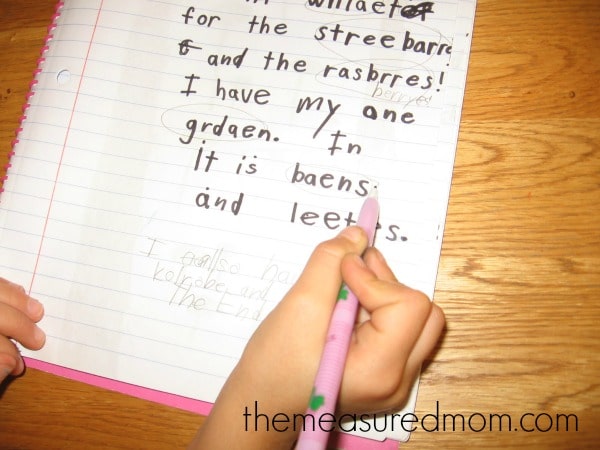 for the streebarre
and the rasbrres!
berries
I have my one
grdaen. In
It is baens.
and leetes.
I also ha
kolrobe and
The End
themeasuredmom.com